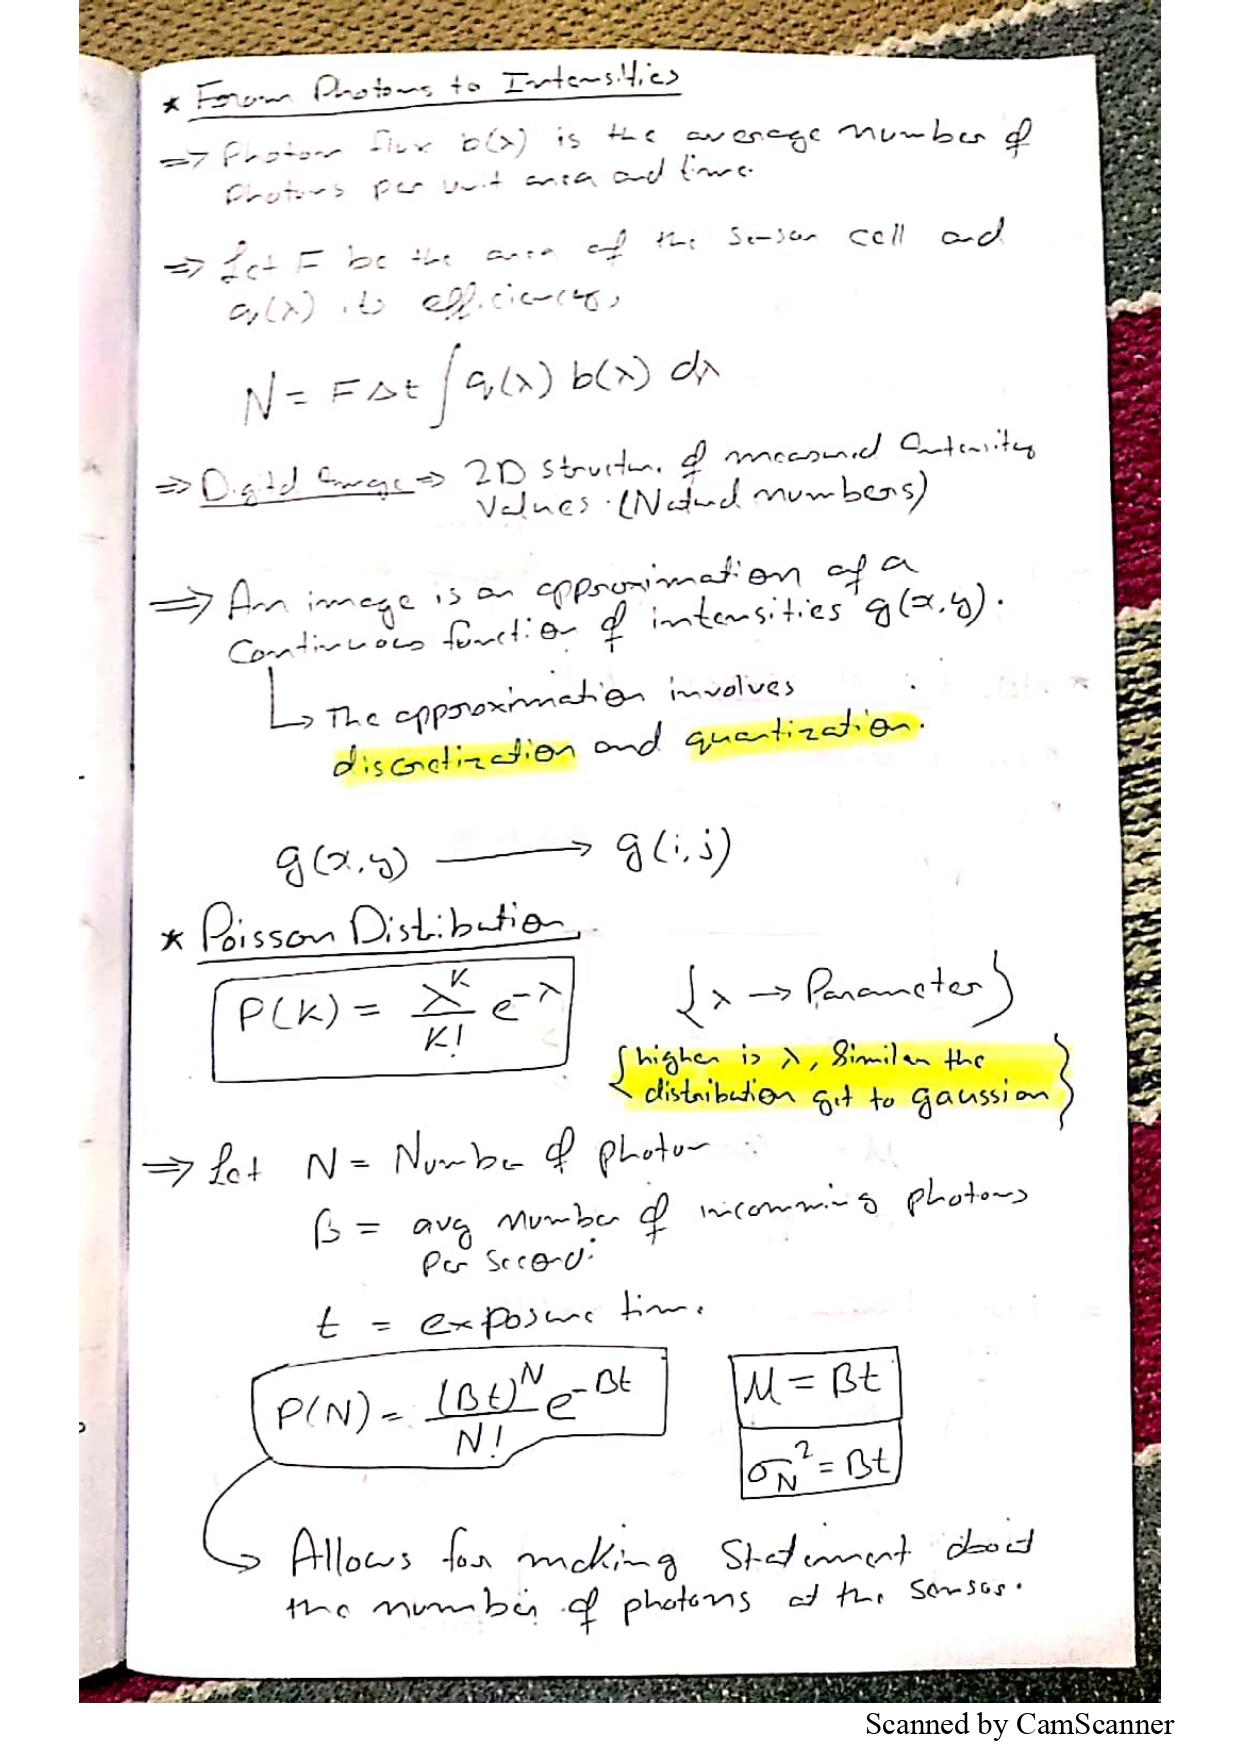 * From Photons to Intensities
⇒ Photon flux b(λ) is the average number of
photons per unit area and time.
⇒ Let F be the area of the sensor cell and
q(λ) its efficiency,
N = F Δt ∫ q(λ) b(λ) dλ
⇒ Digital Image ⇒ 2D structure of measured Intensity
Values. (Natural numbers)
⇒ An image is an approximation of a
Continuous function of intensities g(x,y).
↳ The approximation involves
discretization and quantization.
g(x,y) → g(i,j)
* Poisson Distribution
P(K) = λ^K / K! e^-λ {λ → Parameter}
{higher is λ, Similar the
distribution get to gaussian}
⇒ Let N = Number of photon
B = avg number of incomming photons
Per second.
t = exposure time.
P(N) = (Bt)^N / N! e^-Bt
μ = Bt
σ_N² = Bt
↳ Allows for making Statement about
the number of photons at the sensor.
Scanned by CamScanner